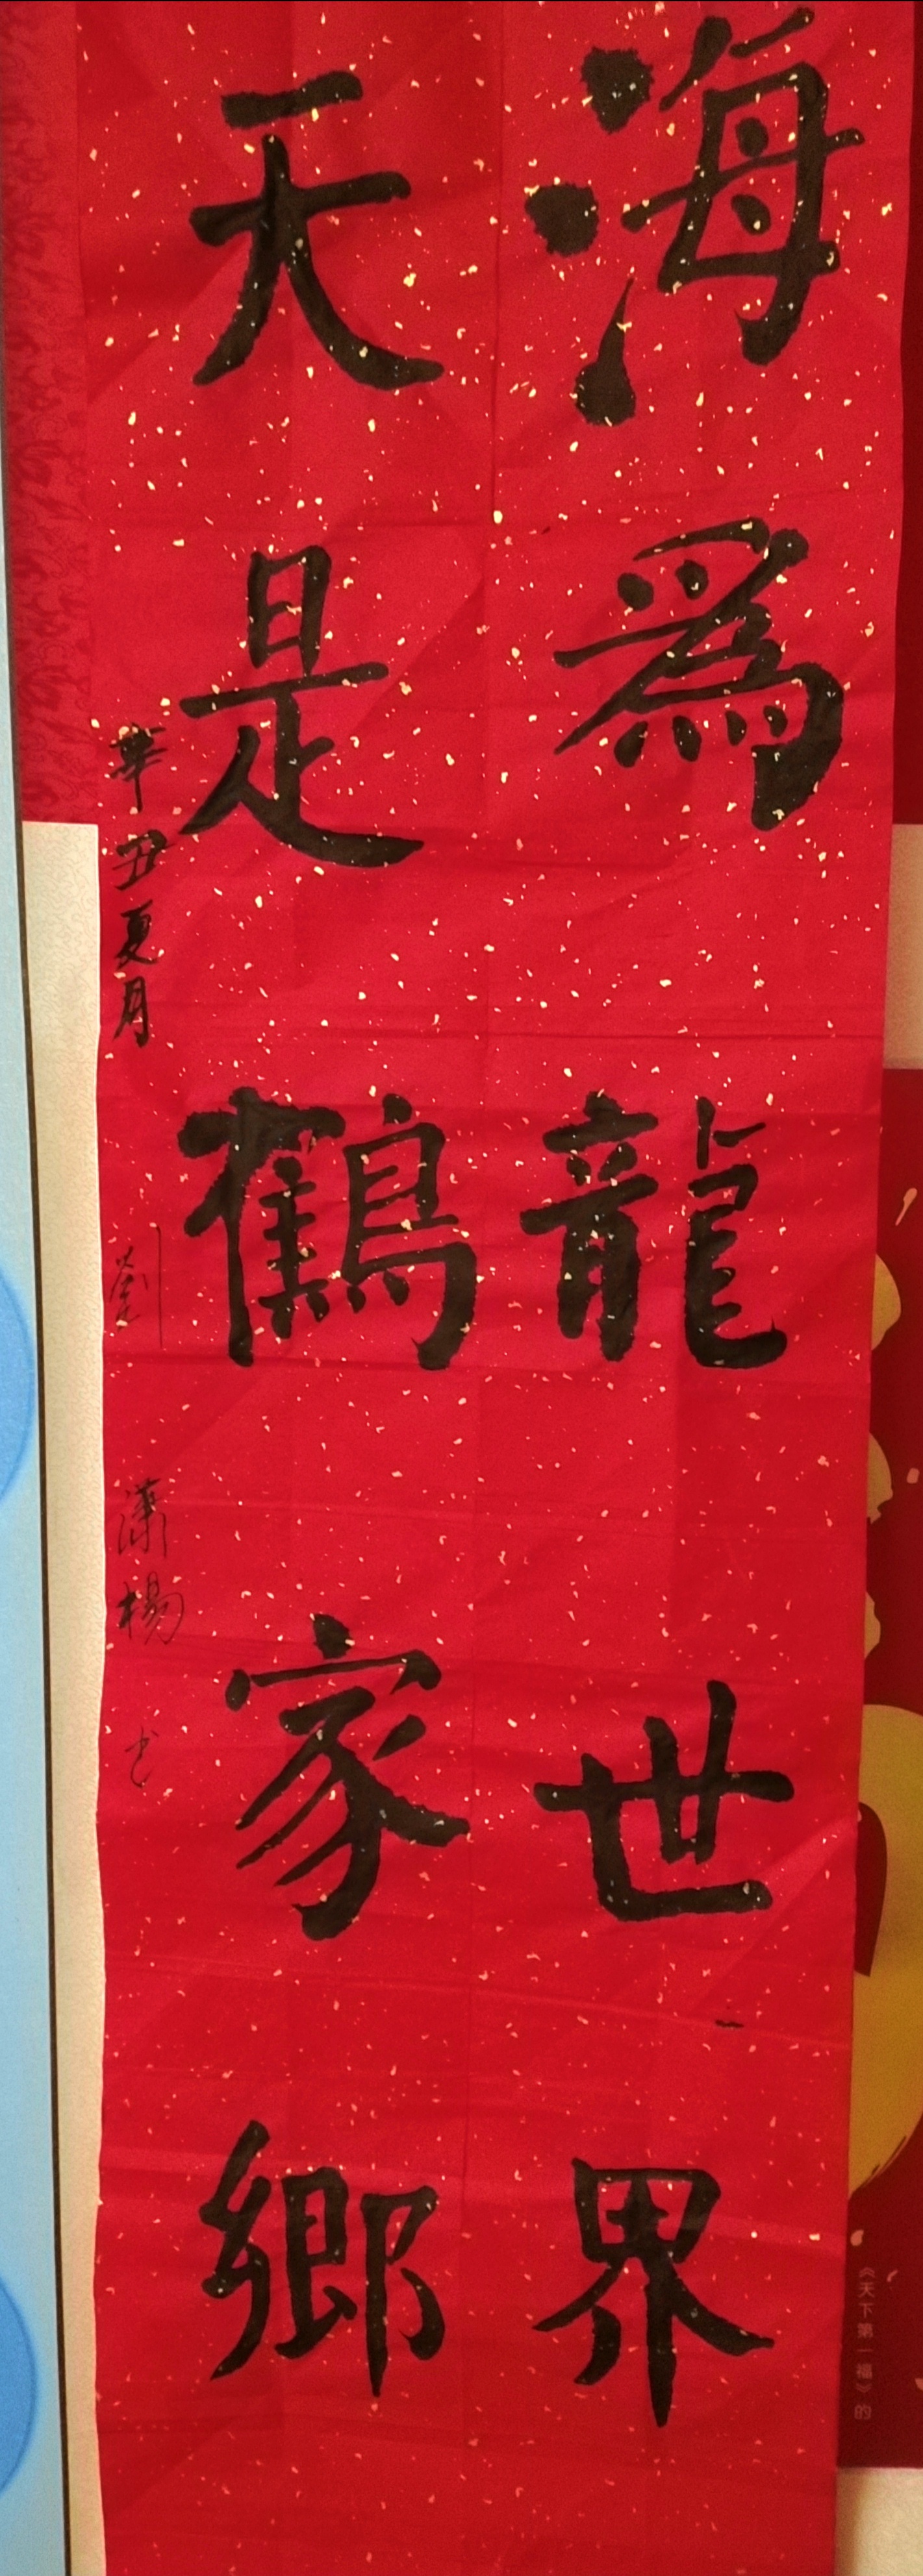 海為龍世界
天是鶴家鄉
辛丑夏月 劉瀟楊书
《天下第一福》的